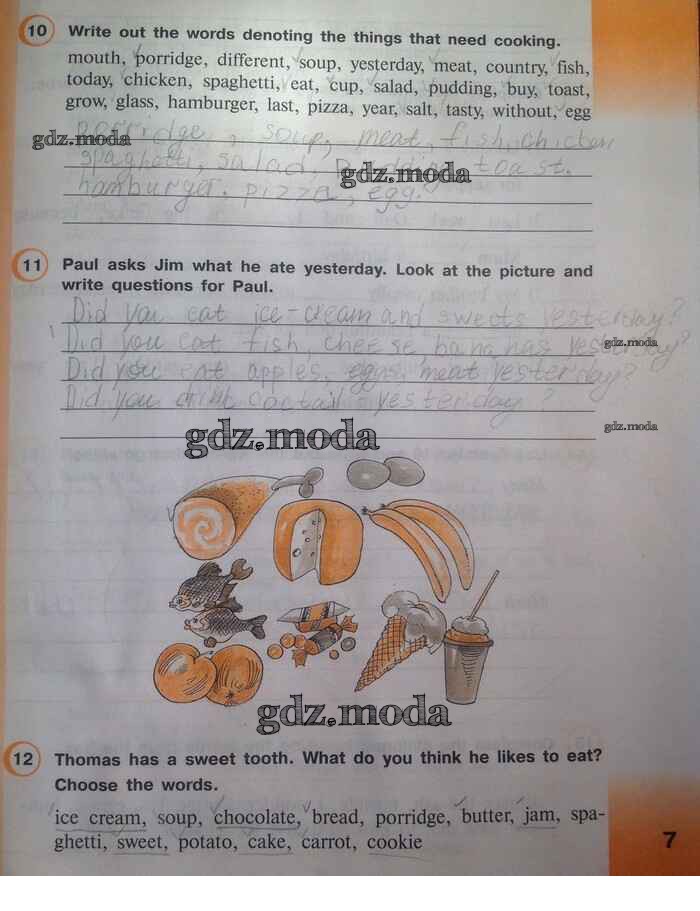 10 Write out the words denoting the things that need cooking.
mouth, porridge, different, soup, yesterday, meat, country, fish,
today, chicken, spaghetti, eat, cup, salad, pudding, buy, toast,
grow, glass, hamburger, last, pizza, year, salt, tasty, without, egg
porridge, soup, meat, fish, chicken
gdz.moda
spaghetti, salad, pudding, toast.
gdz.moda
hamburger. pizza, egg.
11 Paul asks Jim what he ate yesterday. Look at the picture and
write questions for Paul.
Did you eat ice-cream and sweets yesterday?
Did you eat fish, cheese, bananas yesterday?
gdz.moda
Did you eat apples, eggs, meat yesterday?
Did you drink coctail yesterday?
gdz.moda
gdz.moda
gdz.moda
12 Thomas has a sweet tooth. What do you think he likes to eat?
Choose the words.
ice cream, soup, chocolate, bread, porridge, butter, jam, spa-
ghetti, sweet, potato, cake, carrot, cookie
7